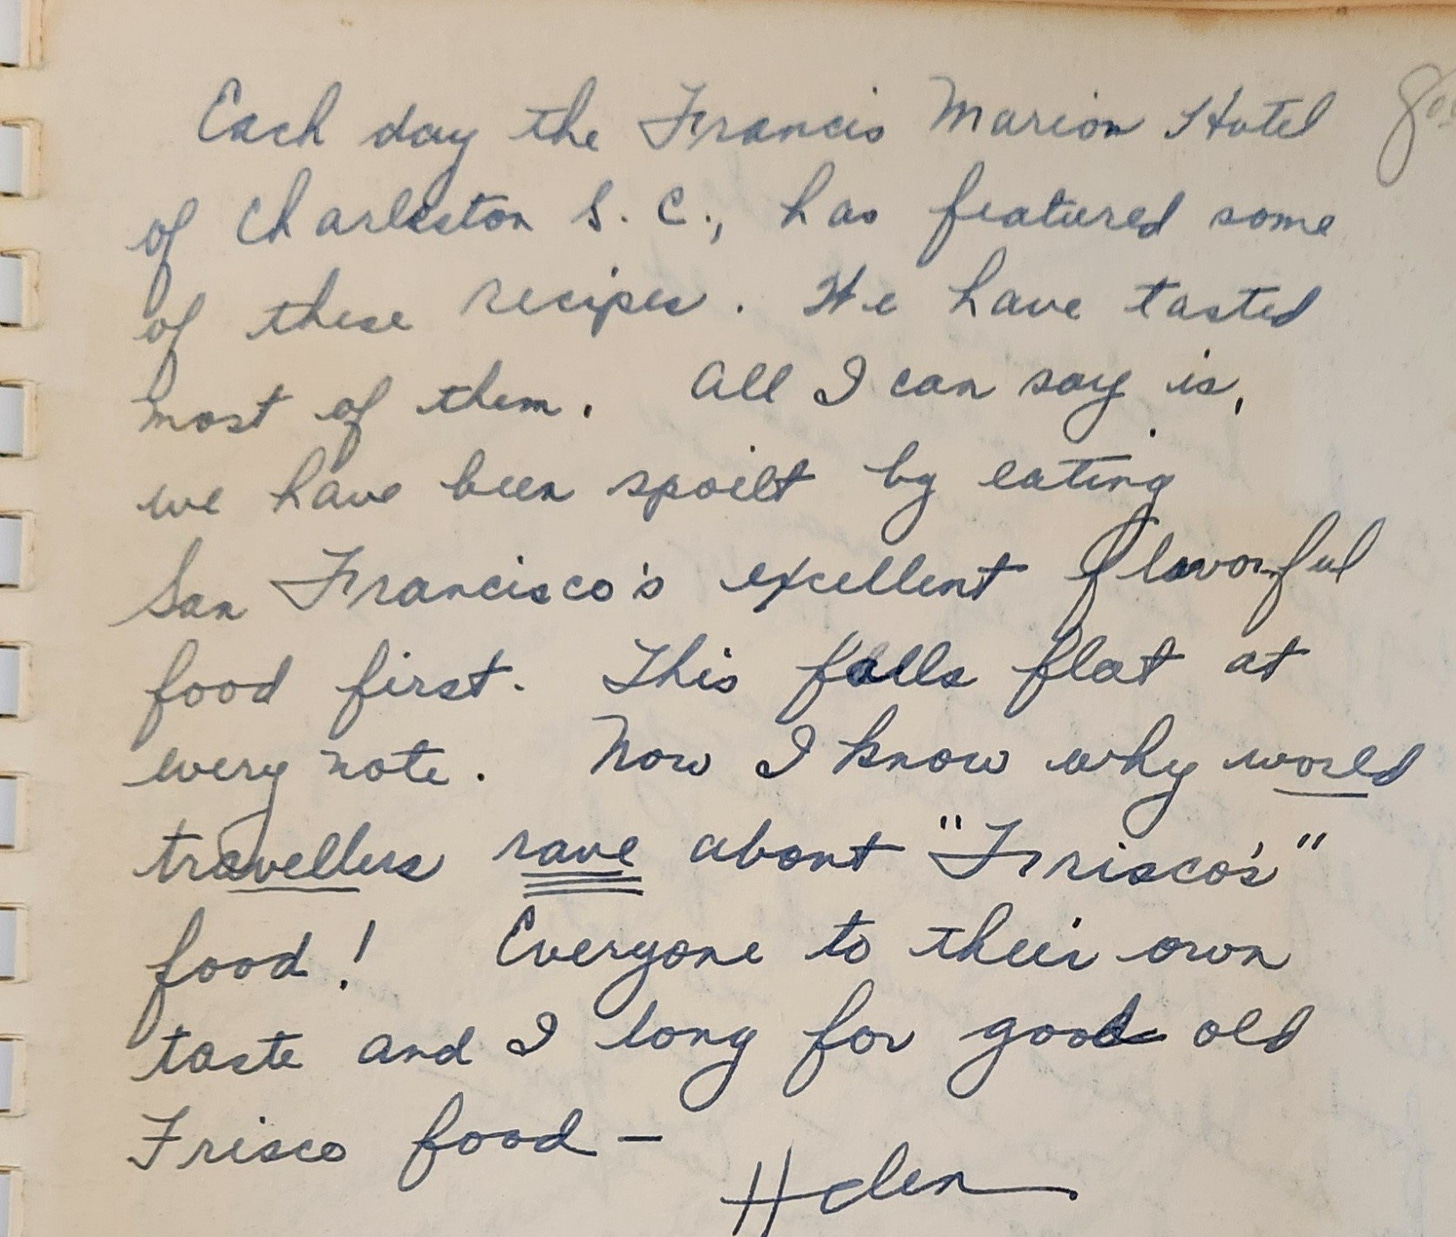 Each day the Francis Marion Hotel
of Charleston S. C., has featured some
of these recipes. We have tasted
most of them. All I can say is,
we have been spoilt by eating
San Francisco's excellent flavorful
food first. This falls flat at
every note. Now I know why world
travellers rave about "Frisco's"
food! Everyone to their own
taste and I long for good old
Frisco food —
Helen